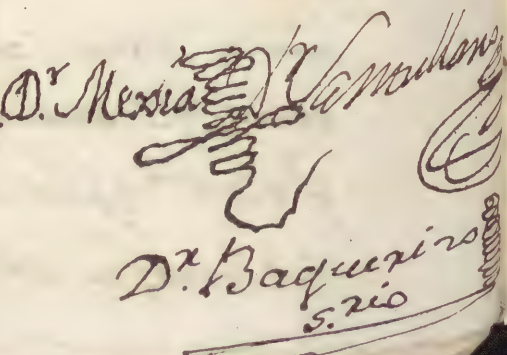 D.r Mexia D.r Santullano
D.r Baquerizo
s.rio